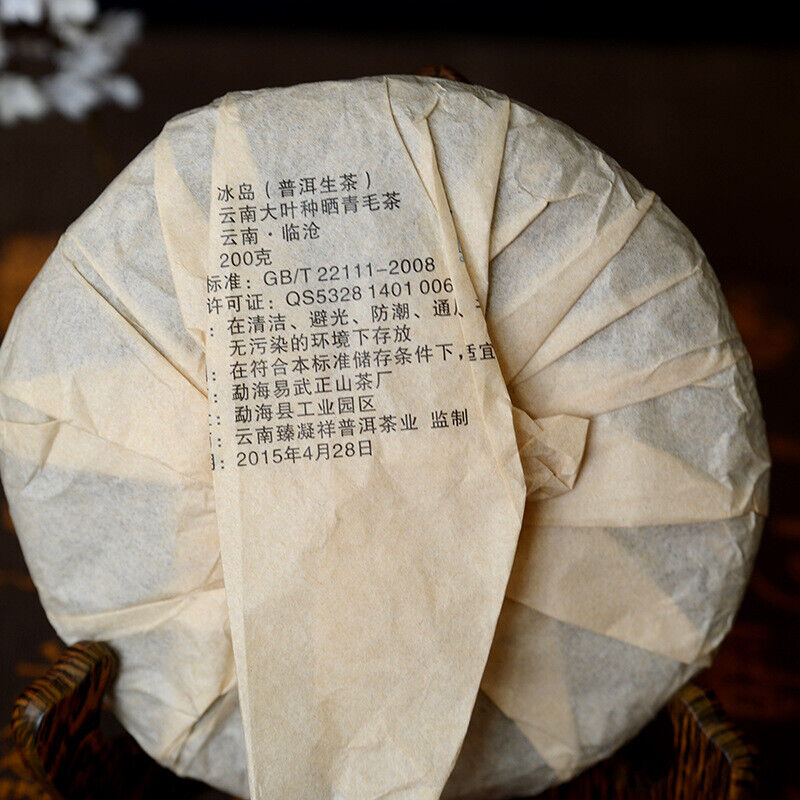 冰岛（普洱生茶）
云南大叶种晒青毛茶
云南·临沧
200克
标准：GB/T 22111-2008
许可证：QS5328 1401 006
：在清洁、避光、防潮、通
无污染的环境下存放
：在符合本标准储存条件下，适宜
：勐海易武正山茶厂
：勐海县工业园区
：云南臻凝祥普洱茶业 监制
：2015年4月28日